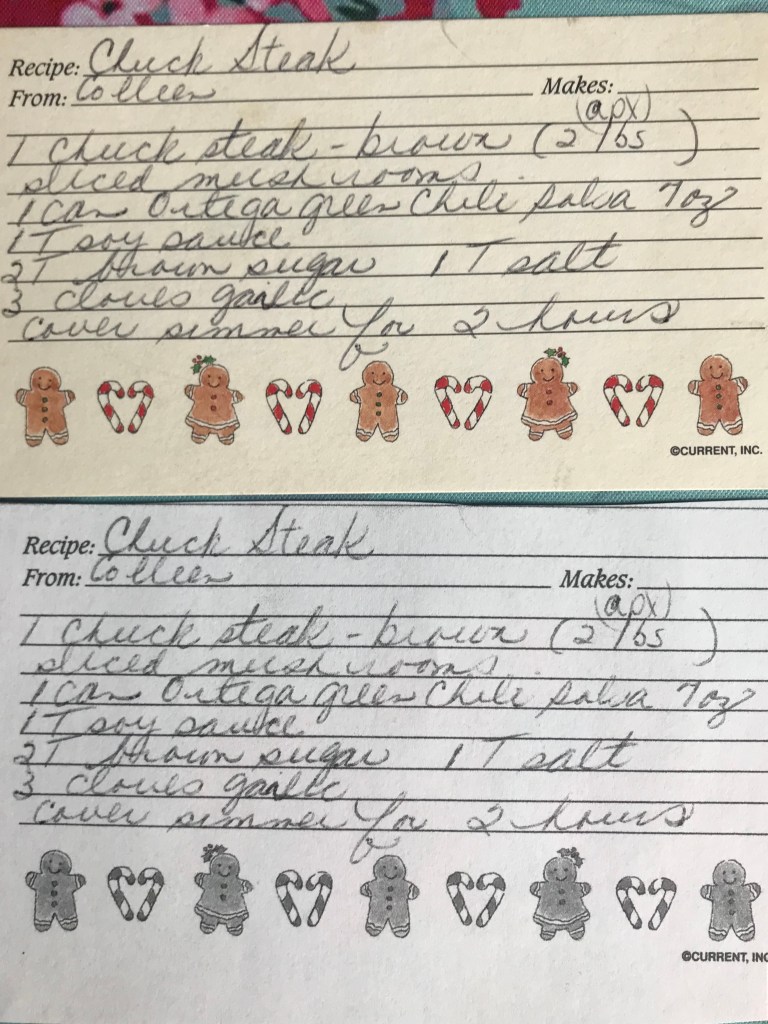 Recipe: Chuck Steak
From: Colleen Makes:
(apx)
1 Chuck steak - brown (2 lbs)
sliced mushrooms
1 can Ortega green Chile Salsa 7oz
1 T soy sauce
2T brown sugar 1 T salt
3 cloves garlic
cover simmer for 2 hours
©CURRENT, INC.
Recipe: Chuck Steak
From: Colleen Makes:
(apx)
1 Chuck steak - brown (2 lbs)
sliced mushrooms
1 can Ortega green Chile Salsa 7oz
1 T soy sauce
2T brown sugar 1 T salt
3 cloves garlic
cover simmer for 2 hours
©CURRENT, INC